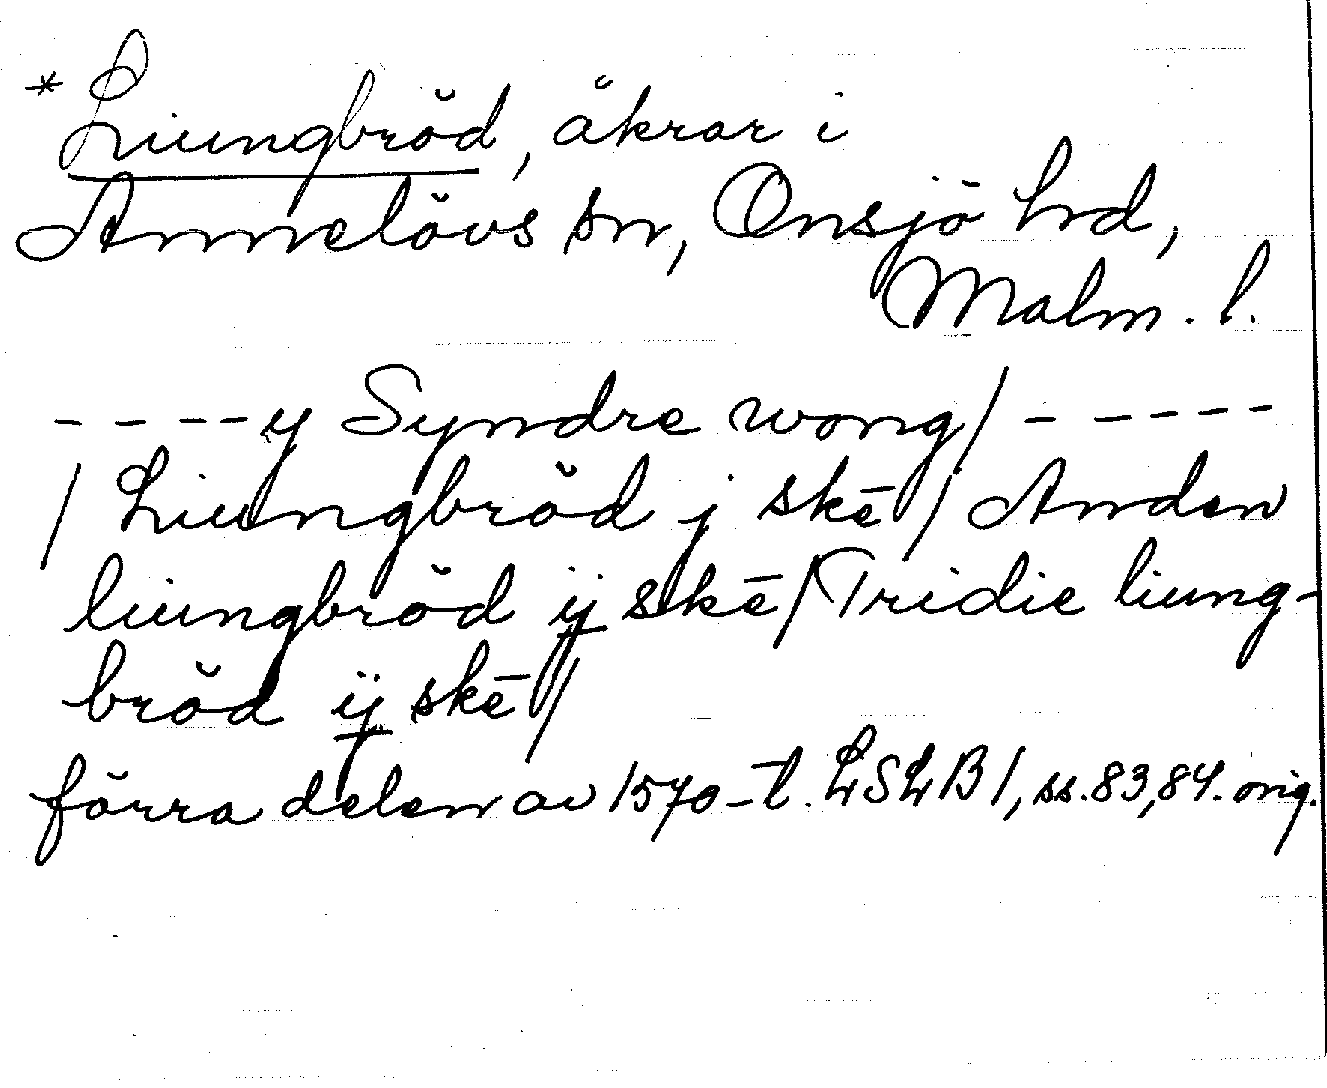 * Liungbröd, åkrar i
Annelövs sn, Onsjö hrd,
Malm. l.
----y Syndre wong/-----
/ Liungbröd j skē/ Anden
liungbröd ij skē/Tridie liung-
bröd ij skē/
förra delen av 1570-t. LSLB1, ss. 83,84. orig.